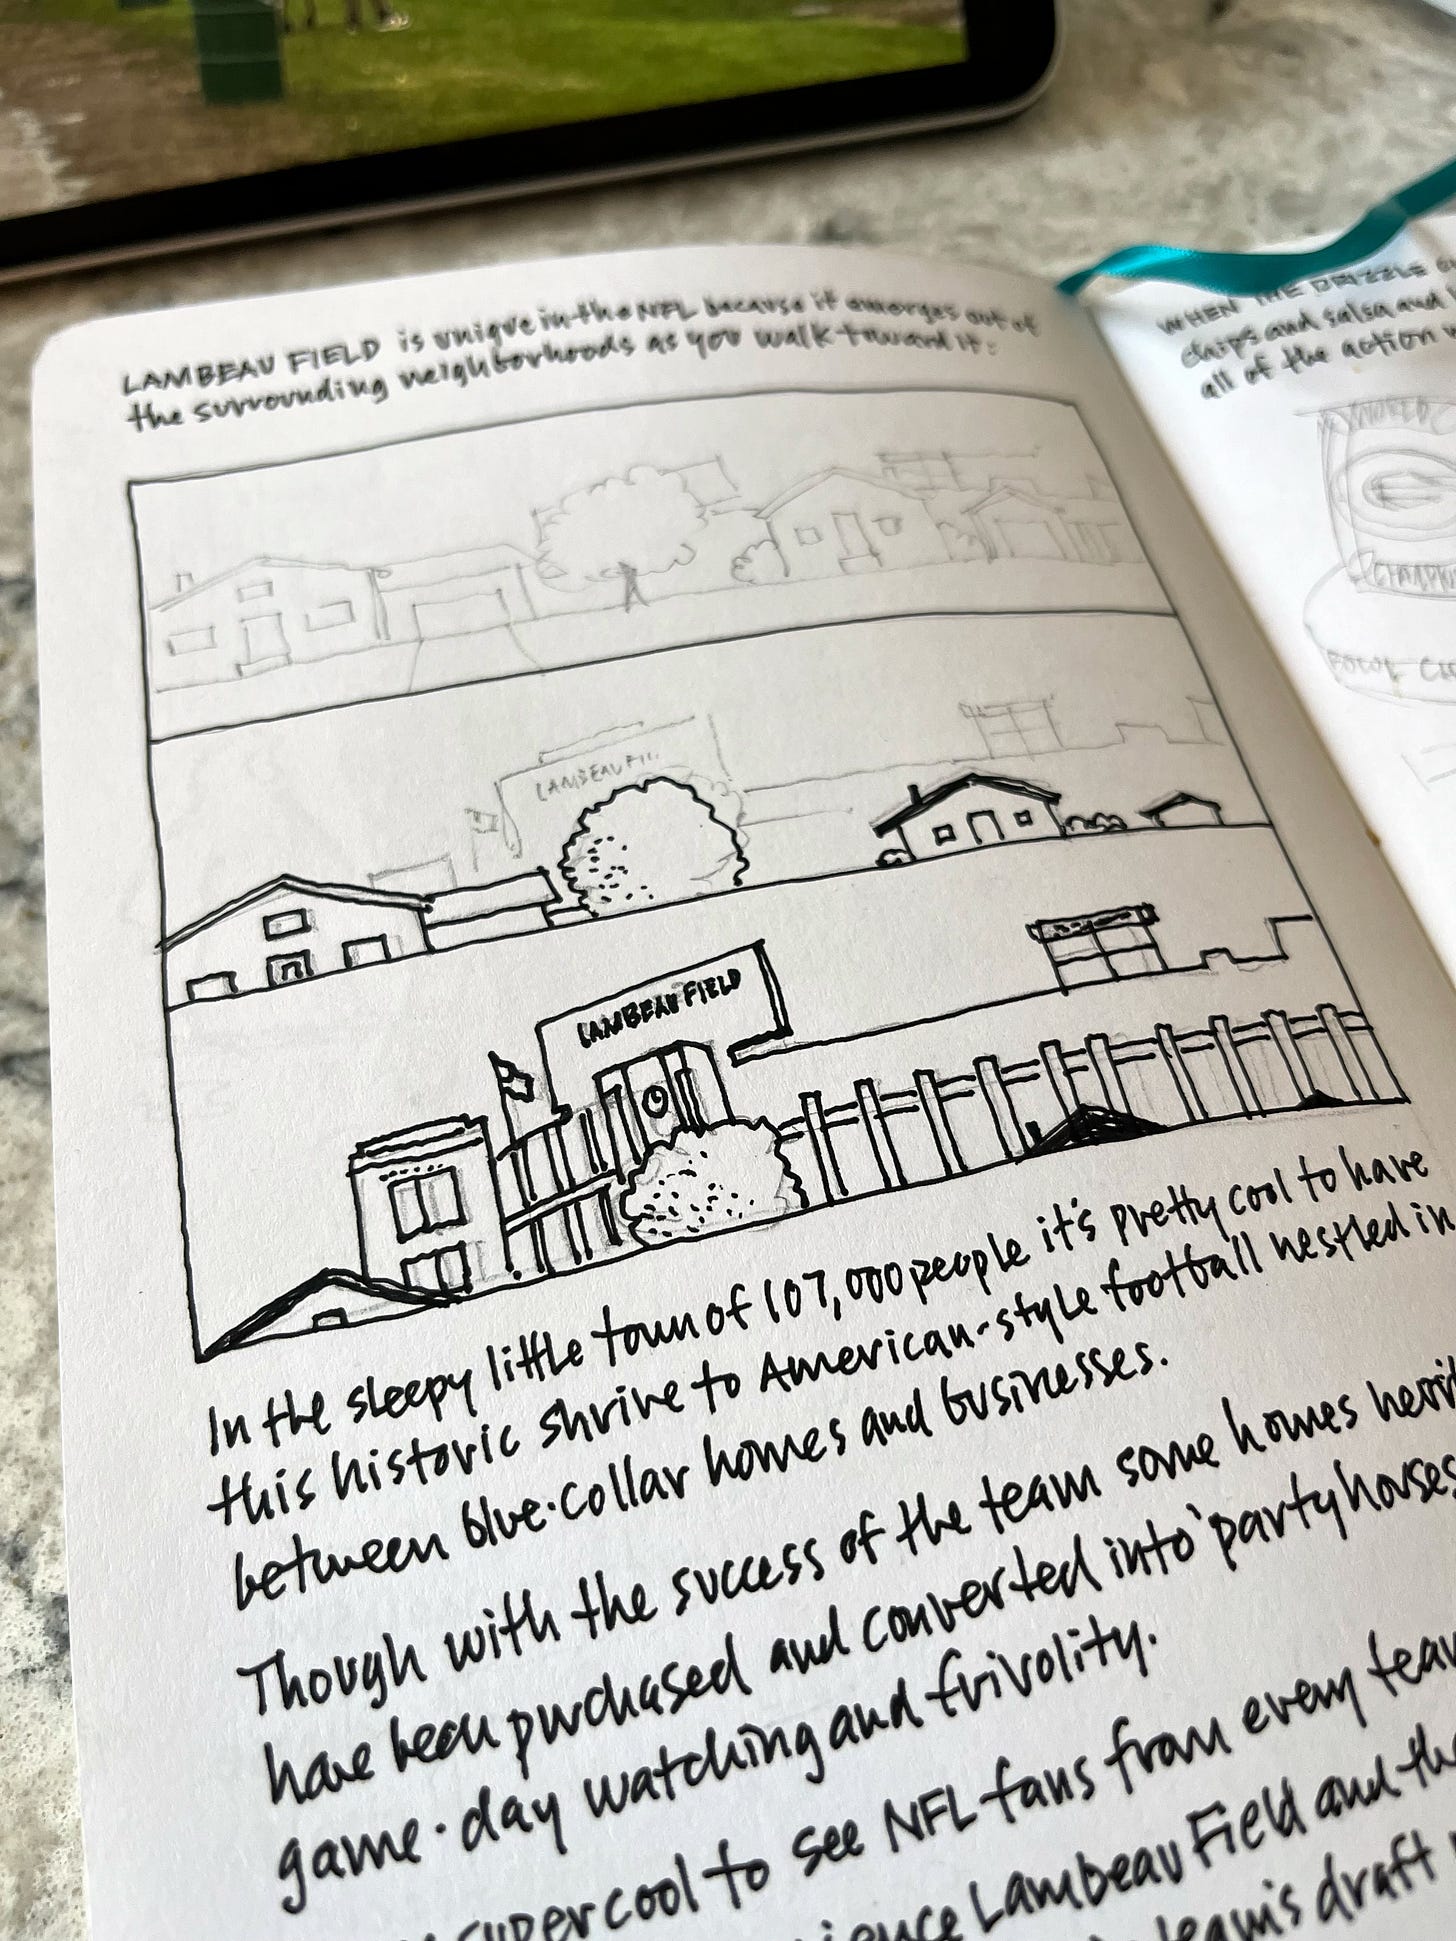 LAMBEAU FIELD is unique in the NFL because it emerges out of
the surrounding neighborhoods as you walk toward it:
LAMBEAU FI
LAMBEAU FIELD
In the sleepy little town of 107,000 people it's pretty cool to have
this historic shrine to American-style football nestled in
between blue-collar homes and businesses.
Though with the success of the team some homes
have been purchased and converted into 'party houses
game-day watching and frivolity.
super cool to see NFL fans from every
Lambeau Field and
draft
WHEN THE DRIZZLE
chips and salsa and
all of the action